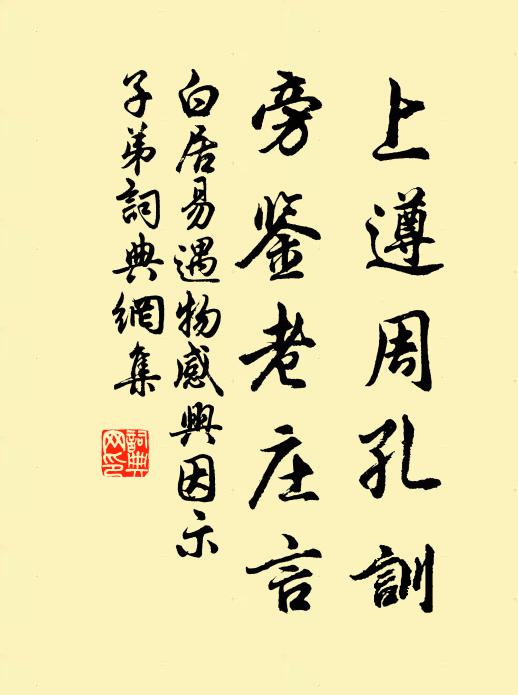 上遵周孔訓
旁鉴老庄言
白居易遇物感興因示
子弟詞典網集
詞典
网印